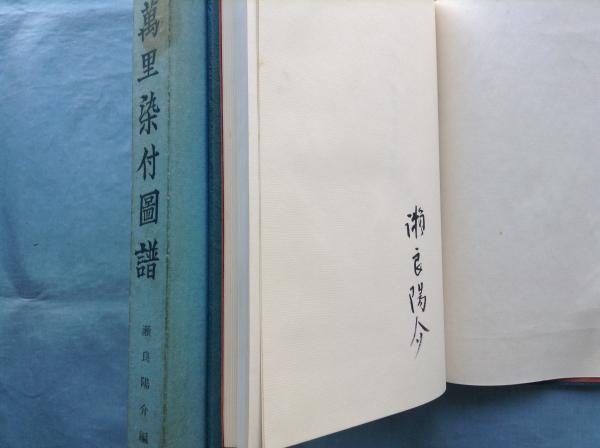 萬里染付圖譜
瀬良陽介編
瀬良陽介